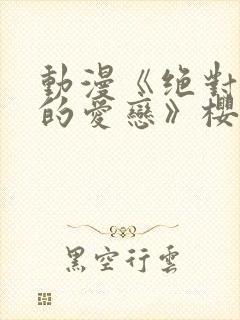 動漫《绝對
的愛戀》櫻
黑空行雲